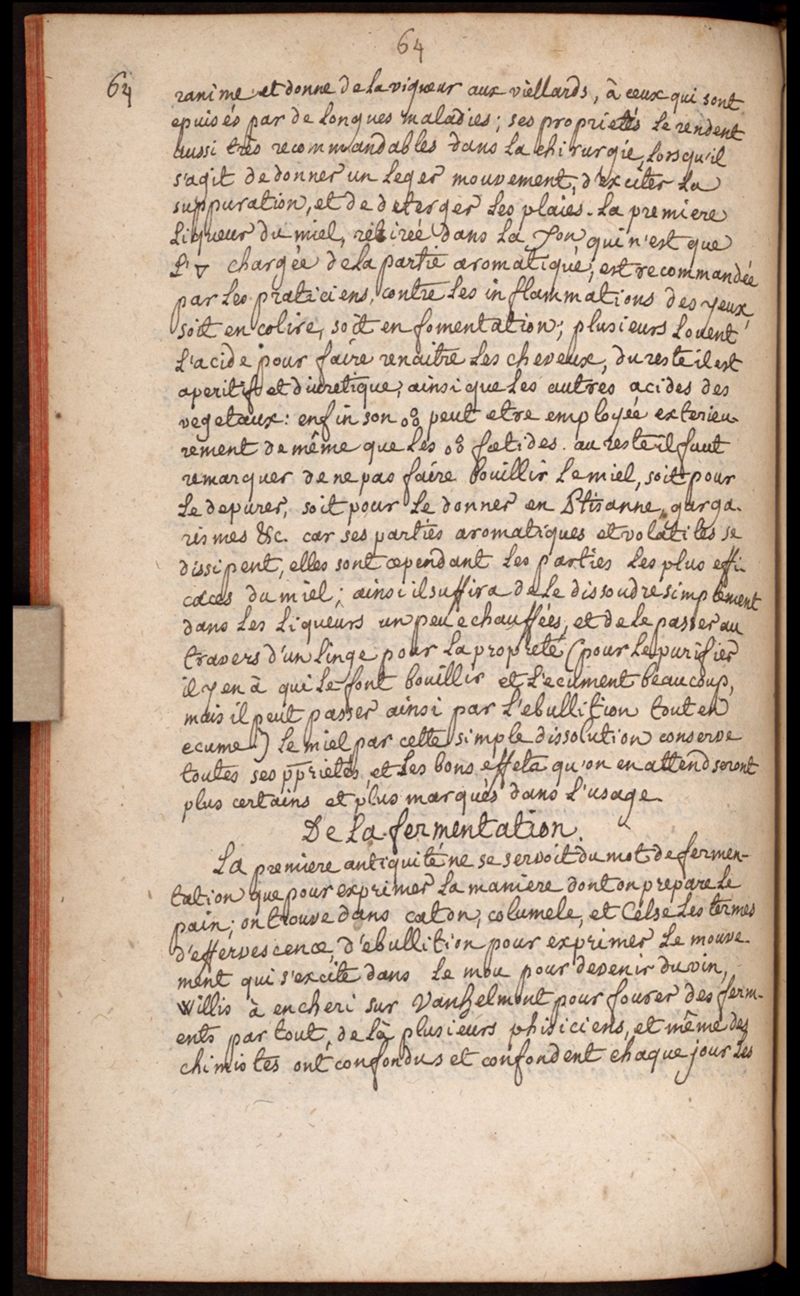 64
64
ranime et donne de la vigueur aux viellards, à ceux qui sont
epuisés par de longues maladies; ses proprietés le rendent
aussi très recommandables dans la chirurgie, lorsqu'il
s'agit de donner un leger mouvement, d'exciter la
suppuration, et de deterger les plaies. la premiere
liqueur du miel, retirée dans la qui n'est que
l'▽ chargée de la partie aromatique, est recommandée
par les praticiens, contre les inflammations des yeux
soit en colire, soit en fomentation; plusieurs louent
l'acide pour faire renaitre les cheveux, du reste il est
aperitif et diuretique, ainsi que les autres acides des
vegetaux: enfin son peut etre employée exterieu-
rement de même que les fœtides. au reste il faut
remarquer de ne pas faire bouillir le miel, soit pour
le depurer, soit pour le donner en Ptisanne, garga-
rismes &c. car ses parties aromatiques et volatiles se
dissipent, elles sont cependant les parties les plus effi-
caces du miel; ainsi il suffira de le dissoudre simplement
dans les liqueurs un peu echauffées, et de le passer au
travers d'un linge pour la propreté (pour le purifier
il y en à qui le font bouillir et l'ecument beaucoup,
mais il peut passer ainsi par l'ebullition tout en
ecume) le miel par cette simple dissolution conserve
toutes ses pprietés, et les bons effets qu'on en attend seront
plus certains et plus marqués dans l'usage.
De la fermentation.
La premiere antiquité ne se servoit du mot de fermen-
tation que pour exprimer la maniere dont on prepare le
pain; on trouve dans caton, columele, et Celse les termes
d'effervescence, d'ebullition pour exprimer le mouve-
ment qui s'excite dans le mou pour devenir du vin,
Willis à encheri sur Vanhelmont pour fourer des ferm-
ents par tout, de là plusieurs phisiciens, et même des
chimistes ont confondus et confondent chaque jour les